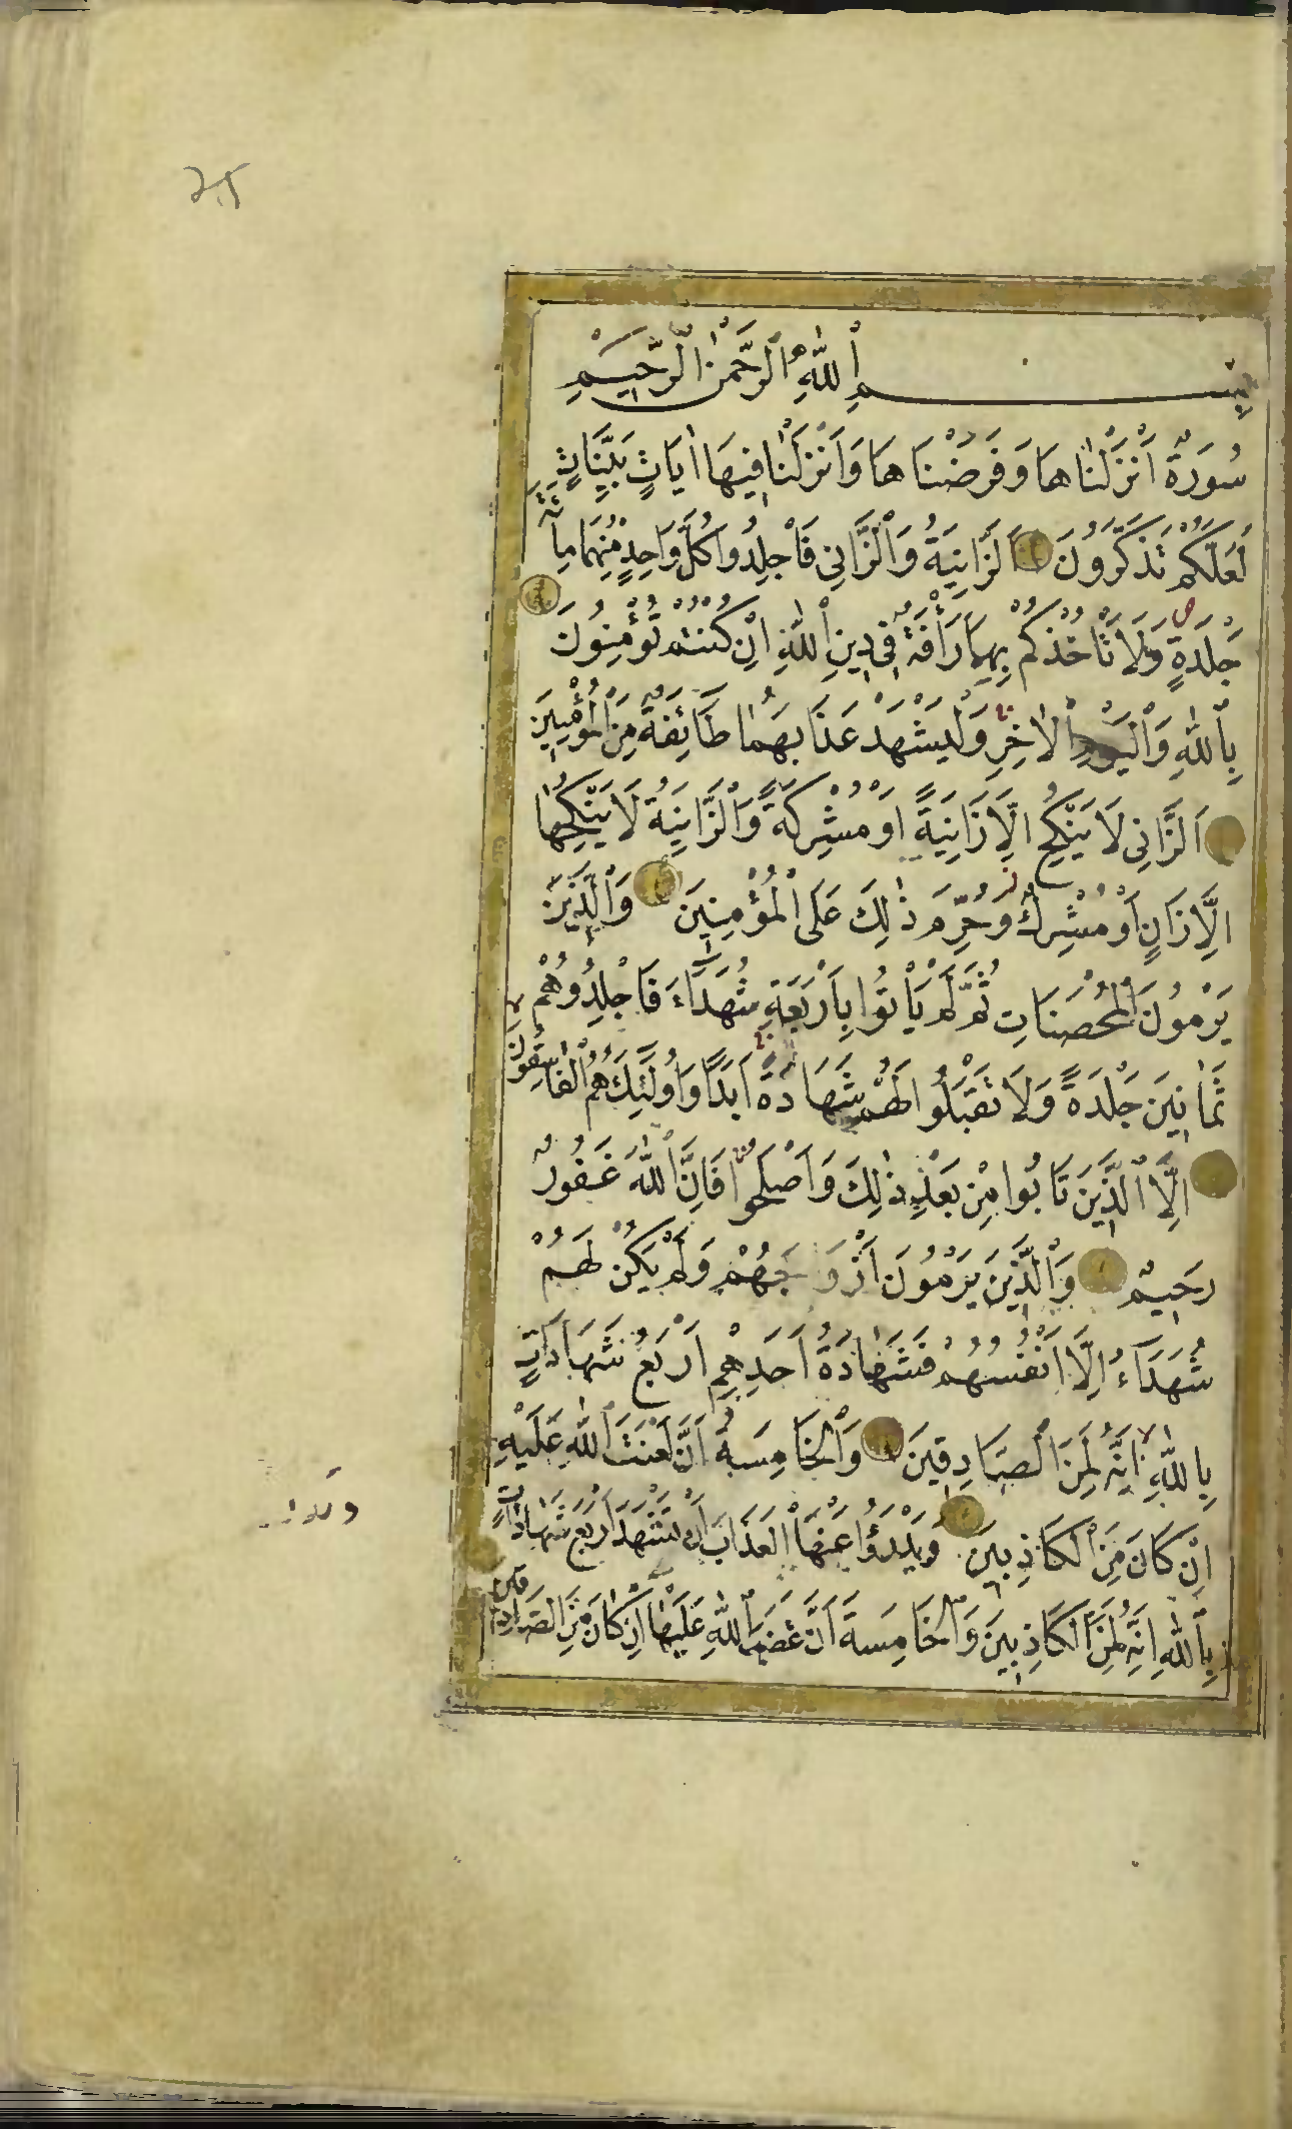 بِسْمِ اللّٰهِ الرَّحْمٰنِ الرَّحِيمِ
سُورَةٌ اَنْزَلْنَاهَا وَفَرَضْنَاهَا وَاَنْزَلْنَا فِيهَا اٰيَاتٍ بَيِّنَاتٍ
لَعَلَّكُمْ تَذَكَّرُونَ اَلزَّانِيَةُ وَالزَّانِى فَاجْلِدُوا كُلَّ وَاحِدٍ مِنْهُمَا مِائَةَ
جَلْدَةٍ وَلَا تَاْخُذْكُمْ بِهِمَا رَأْفَةٌ فِى دِينِ اللّٰهِ اِنْ كُنْتُمْ تُؤْمِنُونَ
بِاللّٰهِ وَالْيَوْمِ الْاٰخِرِ وَلْيَشْهَدْ عَذَابَهُمَا طَائِفَةٌ مِنَ الْمُؤْمِنِينَ
اَلزَّانِى لَا يَنْكِحُ اِلَّا زَانِيَةً اَوْ مُشْرِكَةً وَالزَّانِيَةُ لَا يَنْكِحُهَا
اِلَّا زَانٍ اَوْ مُشْرِكٌ وَحُرِّمَ ذٰلِكَ عَلَى الْمُؤْمِنِينَ وَالَّذِينَ
يَرْمُونَ الْمُحْصَنَاتِ ثُمَّ لَمْ يَأْتُوا بِاَرْبَعَةِ شُهَدَاءَ فَاجْلِدُوهُمْ
ثَمَانِينَ جَلْدَةً وَلَا تَقْبَلُوا لَهُمْ شَهَادَةً اَبَدًا وَاُولٰئِكَ هُمُ الْفَاسِقُونَ
اِلَّا الَّذِينَ تَابُوا مِنْ بَعْدِ ذٰلِكَ وَاَصْلَحُوا فَاِنَّ اللّٰهَ غَفُورٌ
رَحِيمٌ وَالَّذِينَ يَرْمُونَ اَزْوَاجَهُمْ وَلَمْ يَكُنْ لَهُمْ
شُهَدَاءُ اِلَّا اَنْفُسُهُمْ فَشَهَادَةُ اَحَدِهِمْ اَرْبَعُ شَهَادَاتٍ
بِاللّٰهِ اِنَّهُ لَمِنَ الصَّادِقِينَ وَالْخَامِسَةُ اَنَّ لَعْنَتَ اللّٰهِ عَلَيْهِ
اِنْ كَانَ مِنَ الْكَاذِبِينَ وَيَدْرَؤُا عَنْهَا الْعَذَابَ اَنْ تَشْهَدَ اَرْبَعَ شَهَادَاتٍ
بِاللّٰهِ اِنَّهُ لَمِنَ الْكَاذِبِينَ وَالْخَامِسَةَ اَنَّ غَضَبَ اللّٰهِ عَلَيْهَا اِنْ كَانَ مِنَ الصَّادِقِينَ